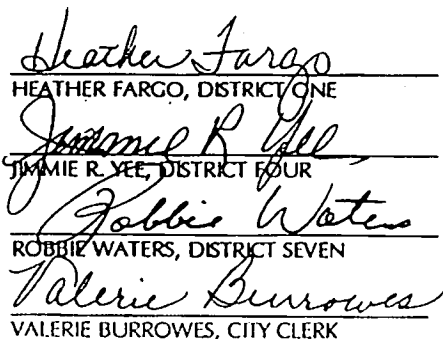 Heather Fargo
HEATHER FARGO, DISTRICT ONE
Jimmie R Yee
JIMMIE R. YEE, DISTRICT FOUR
Robbie Waters
ROBBIE WATERS, DISTRICT SEVEN
Valerie Burrowes
VALERIE BURROWES, CITY CLERK